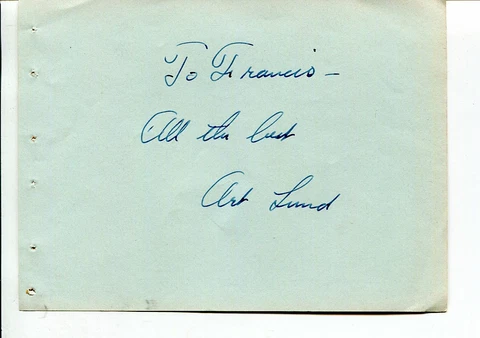 To Francis -
All the best
Art Lund